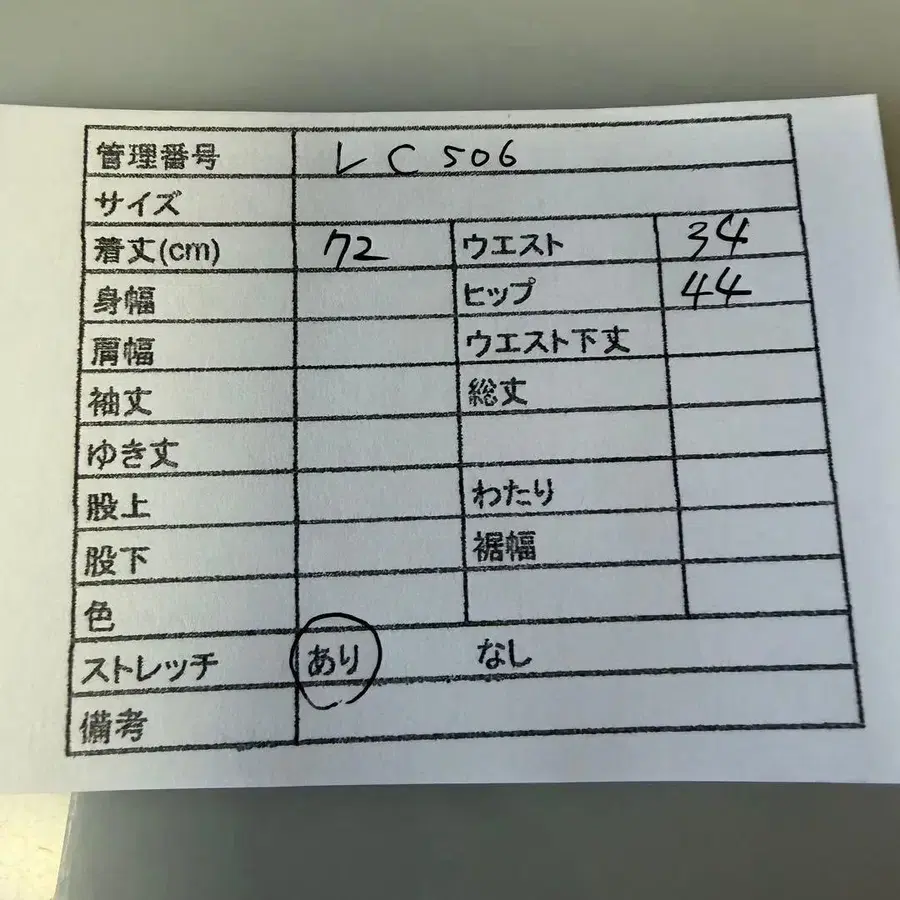 管理番号 レC 506
サイズ
着丈(cm) 72 ウエスト 34
身幅 ヒップ 44
肩幅 ウエスト下丈
袖丈 総丈
ゆき丈
股上 わたり
股下 裾幅
色
ストレッチ あり なし
備考